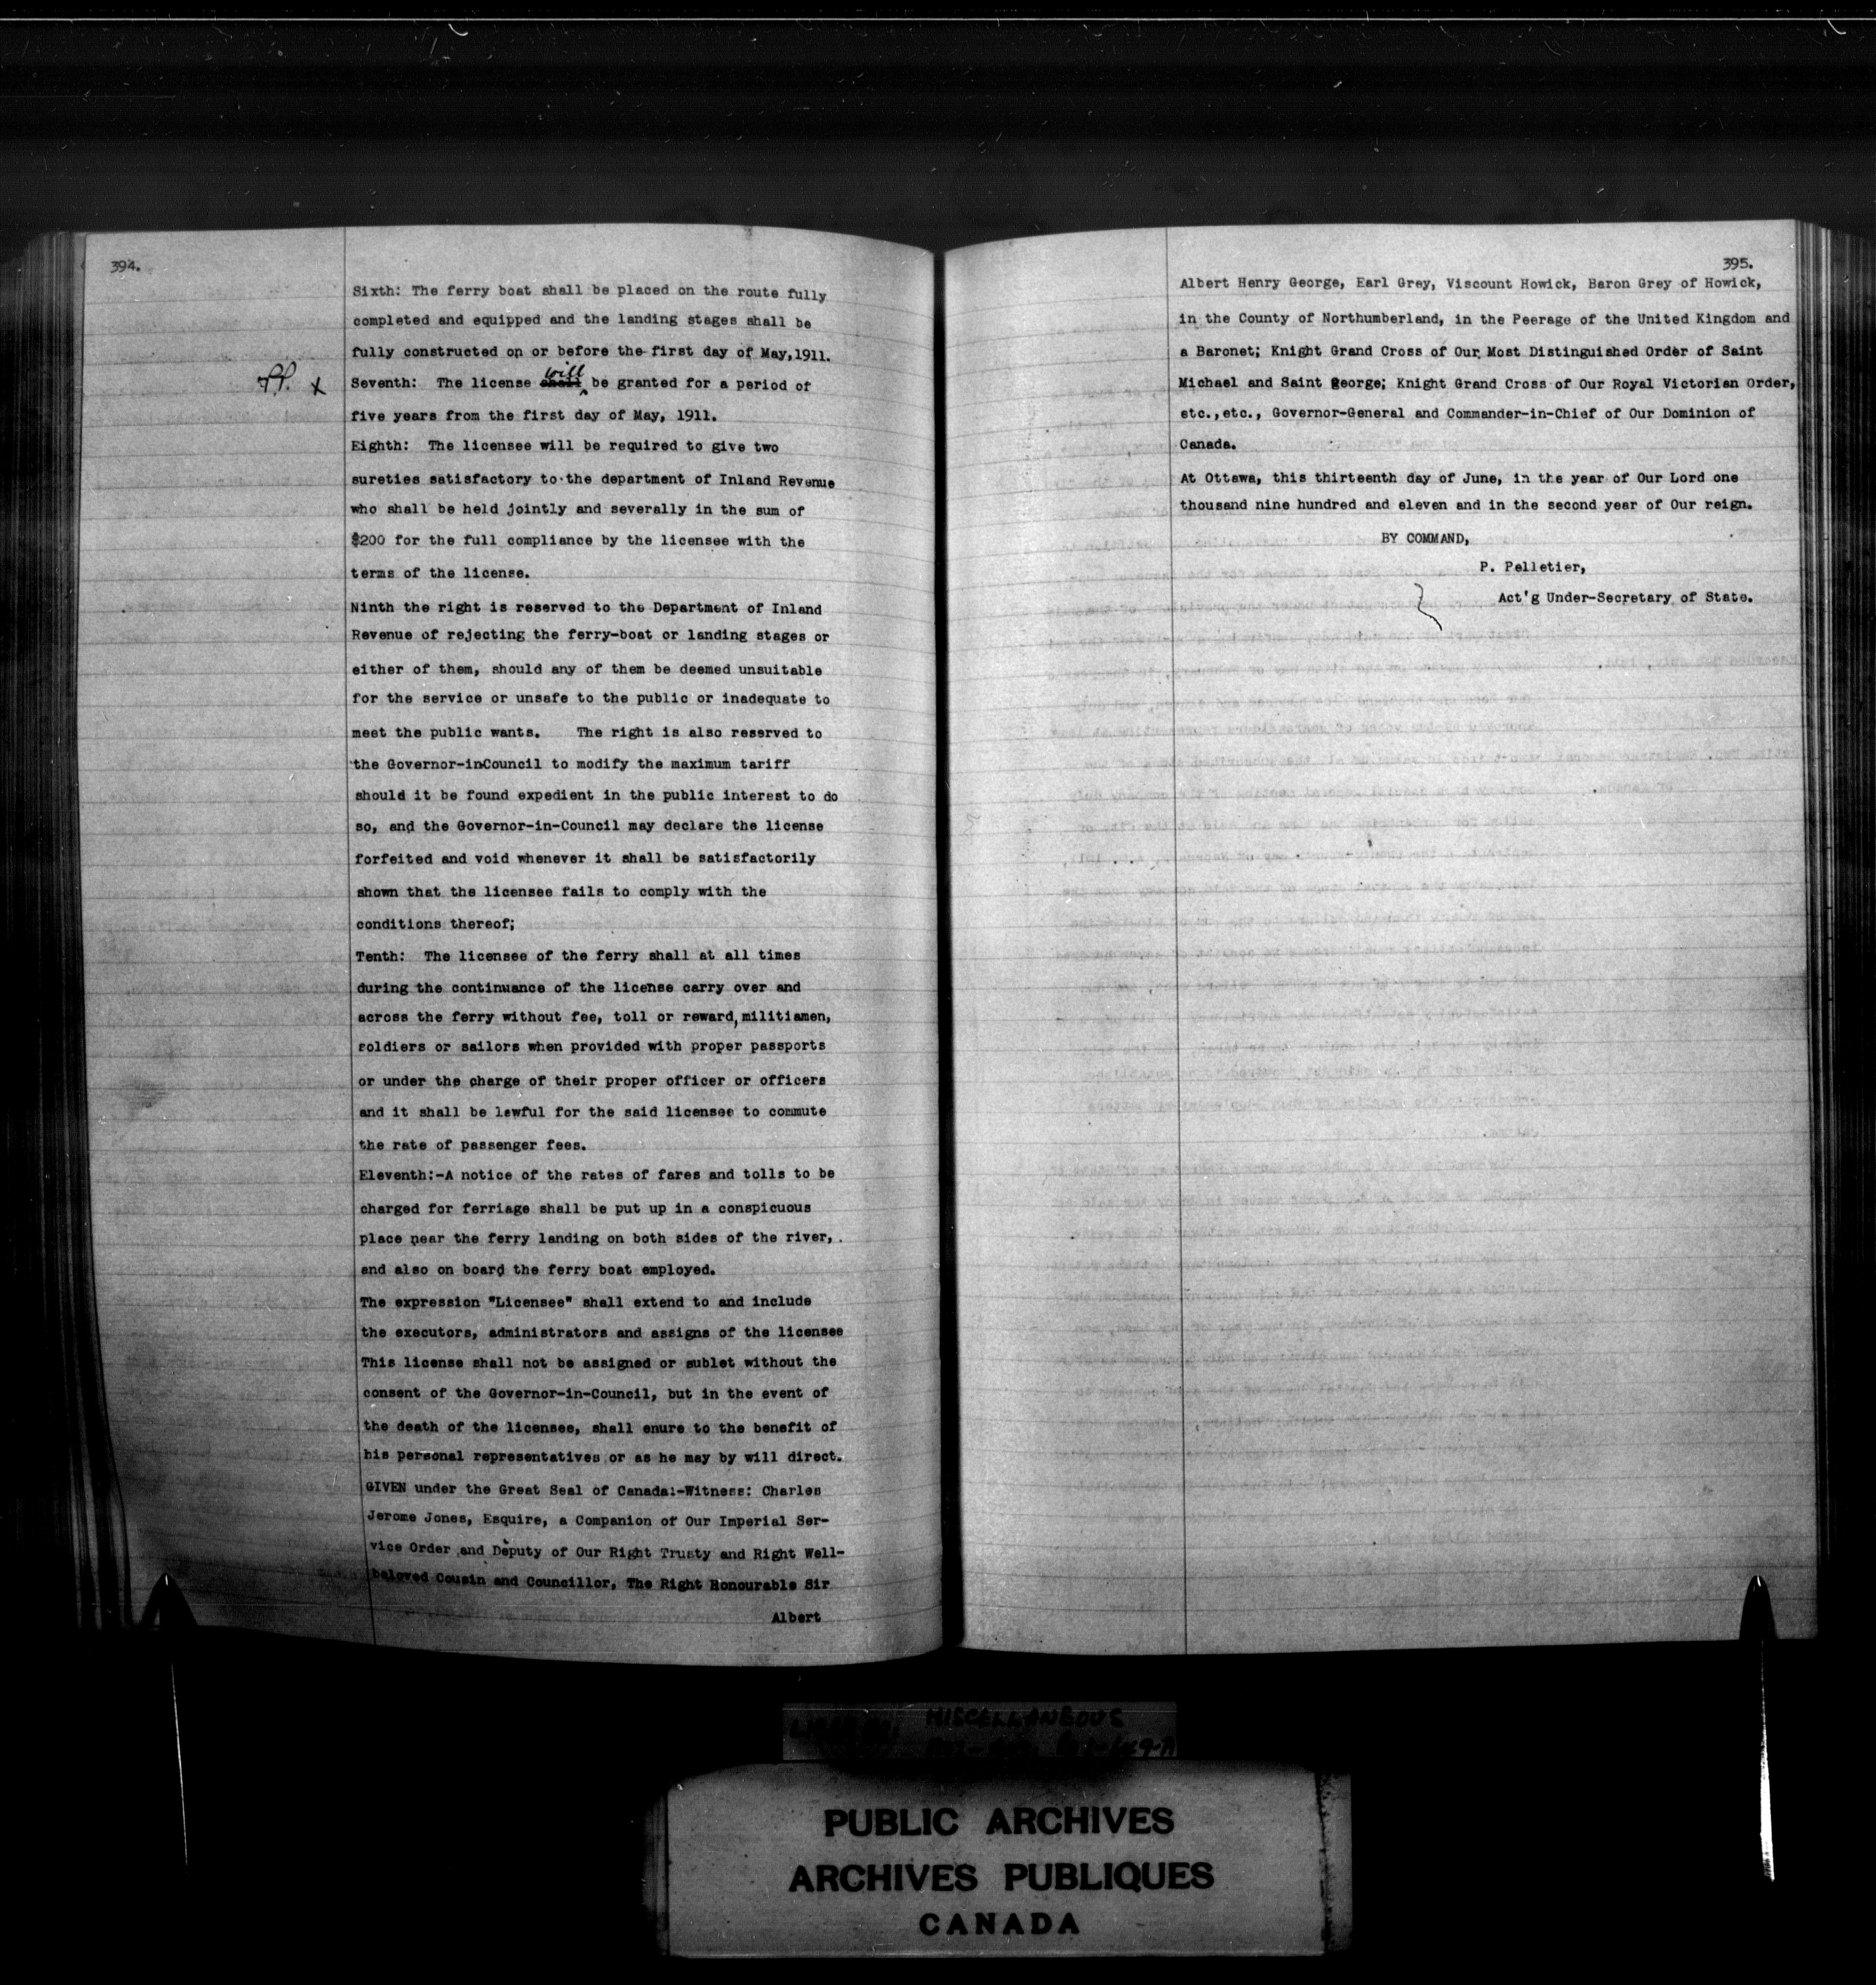 394.
Sixth: The ferry boat shall be placed on the route fully
completed and equipped and the landing stages shall be
fully constructed on or before the first day of May,1911.
P.P. x
will
Seventh: The license shall be granted for a period of
five years from the first day of May, 1911.
Eighth: The licensee will be required to give two
sureties satisfactory to the department of Inland Revenue
who shall be held jointly and severally in the sum of
$200 for the full compliance by the licensee with the
terms of the license.
Ninth the right is reserved to the Department of Inland
Revenue of rejecting the ferry-boat or landing stages or
either of them, should any of them be deemed unsuitable
for the service or unsafe to the public or inadequate to
meet the public wants. The right is also reserved to
the Governor-inCouncil to modify the maximum tariff
should it be found expedient in the public interest to do
so, and the Governor-in-Council may declare the license
forfeited and void whenever it shall be satisfactorily
shown that the licensee fails to comply with the
conditions thereof;
Tenth: The licensee of the ferry shall at all times
during the continuance of the license carry over and
across the ferry without fee, toll or reward, militiamen,
soldiers or sailors when provided with proper passports
or under the charge of their proper officer or officers
and it shall be lawful for the said licensee to commute
the rate of passenger fees.
Eleventh:-A notice of the rates of fares and tolls to be
charged for ferriage shall be put up in a conspicuous
place near the ferry landing on both sides of the river,
and also on board the ferry boat employed.
The expression "Licensee" shall extend to and include
the executors, administrators and assigns of the licensee
This license shall not be assigned or sublet without the
consent of the Governor-in-Council, but in the event of
the death of the licensee, shall enure to the benefit of
his personal representatives or as he may by will direct.
GIVEN under the Great Seal of Canada:-Witness: Charles
Jerome Jones, Esquire, a Companion of Our Imperial Ser-
vice Order and Deputy of Our Right Trusty and Right Well-
beloved Cousin and Councillor, The Right Honourable Sir
Albert
395.
Albert Henry George, Earl Grey, Viscount Howick, Baron Grey of Howick,
in the County of Northumberland, in the Peerage of the United Kingdom and
a Baronet; Knight Grand Cross of Our Most Distinguished Order of Saint
Michael and Saint George; Knight Grand Cross of Our Royal Victorian Order,
etc.,etc., Governor-General and Commander-in-Chief of Our Dominion of
Canada.
At Ottawa, this thirteenth day of June, in the year of Our Lord one
thousand nine hundred and eleven and in the second year of Our reign.
BY COMMAND,
P. Pelletier,
Act'g Under-Secretary of State.
MISCELLANEOUS
PUBLIC ARCHIVES
ARCHIVES PUBLIQUES
CANADA